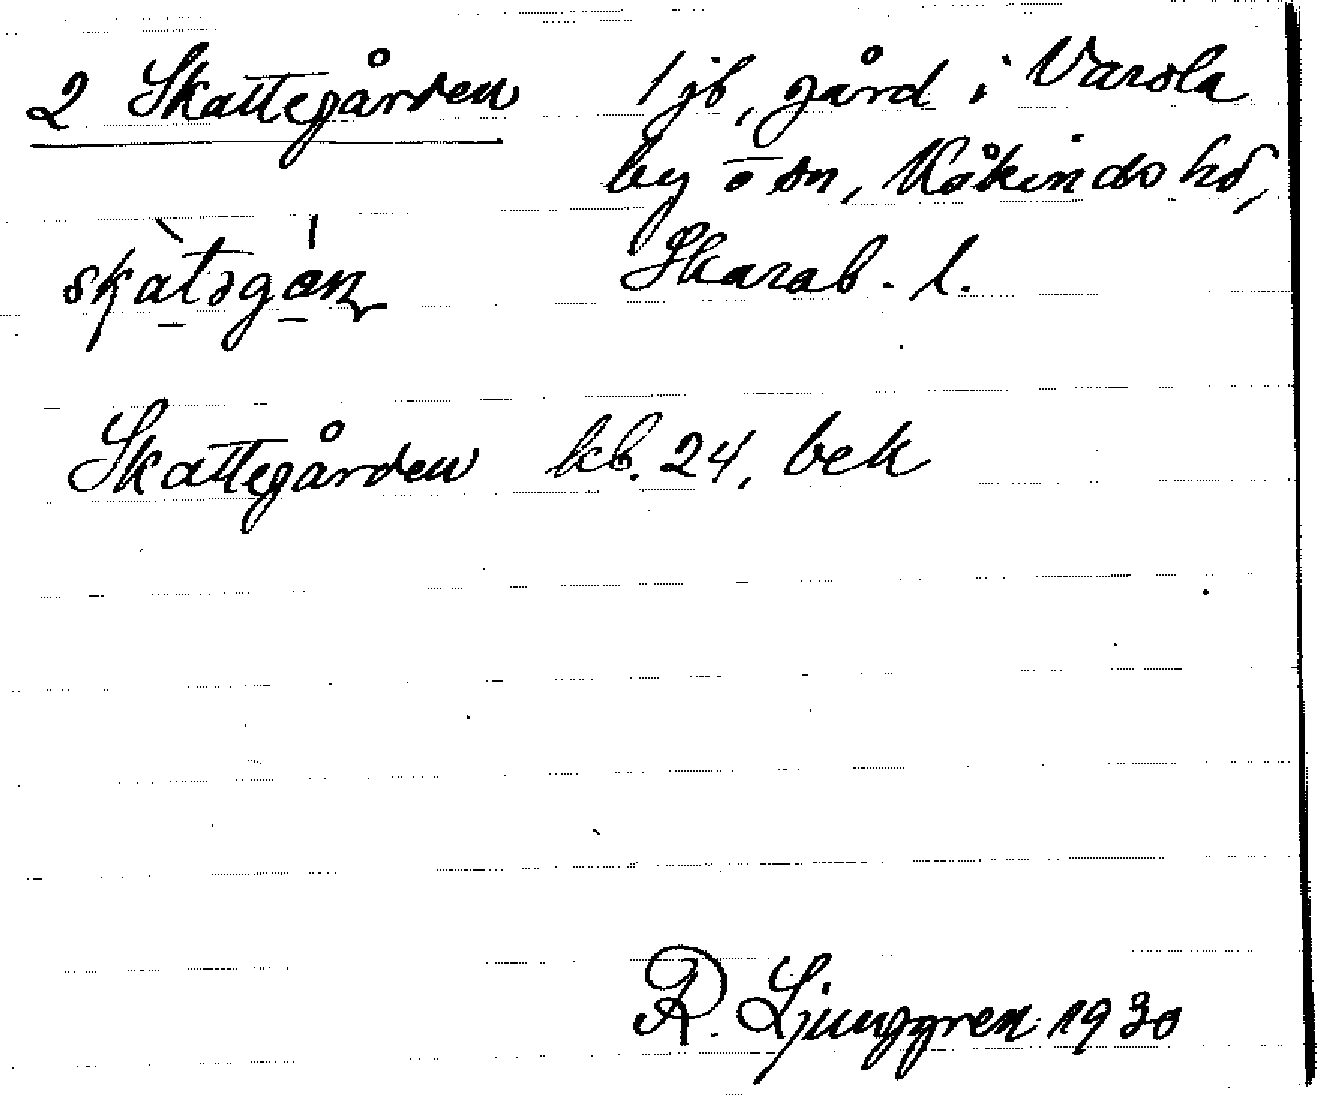 2 Skattegården 1 jb, gård i Varola
by o sn, Kåkinds hd,
skàtəgán Skarab. l.
Skattegården kb. 24, bek
R. Ljunggren 1930